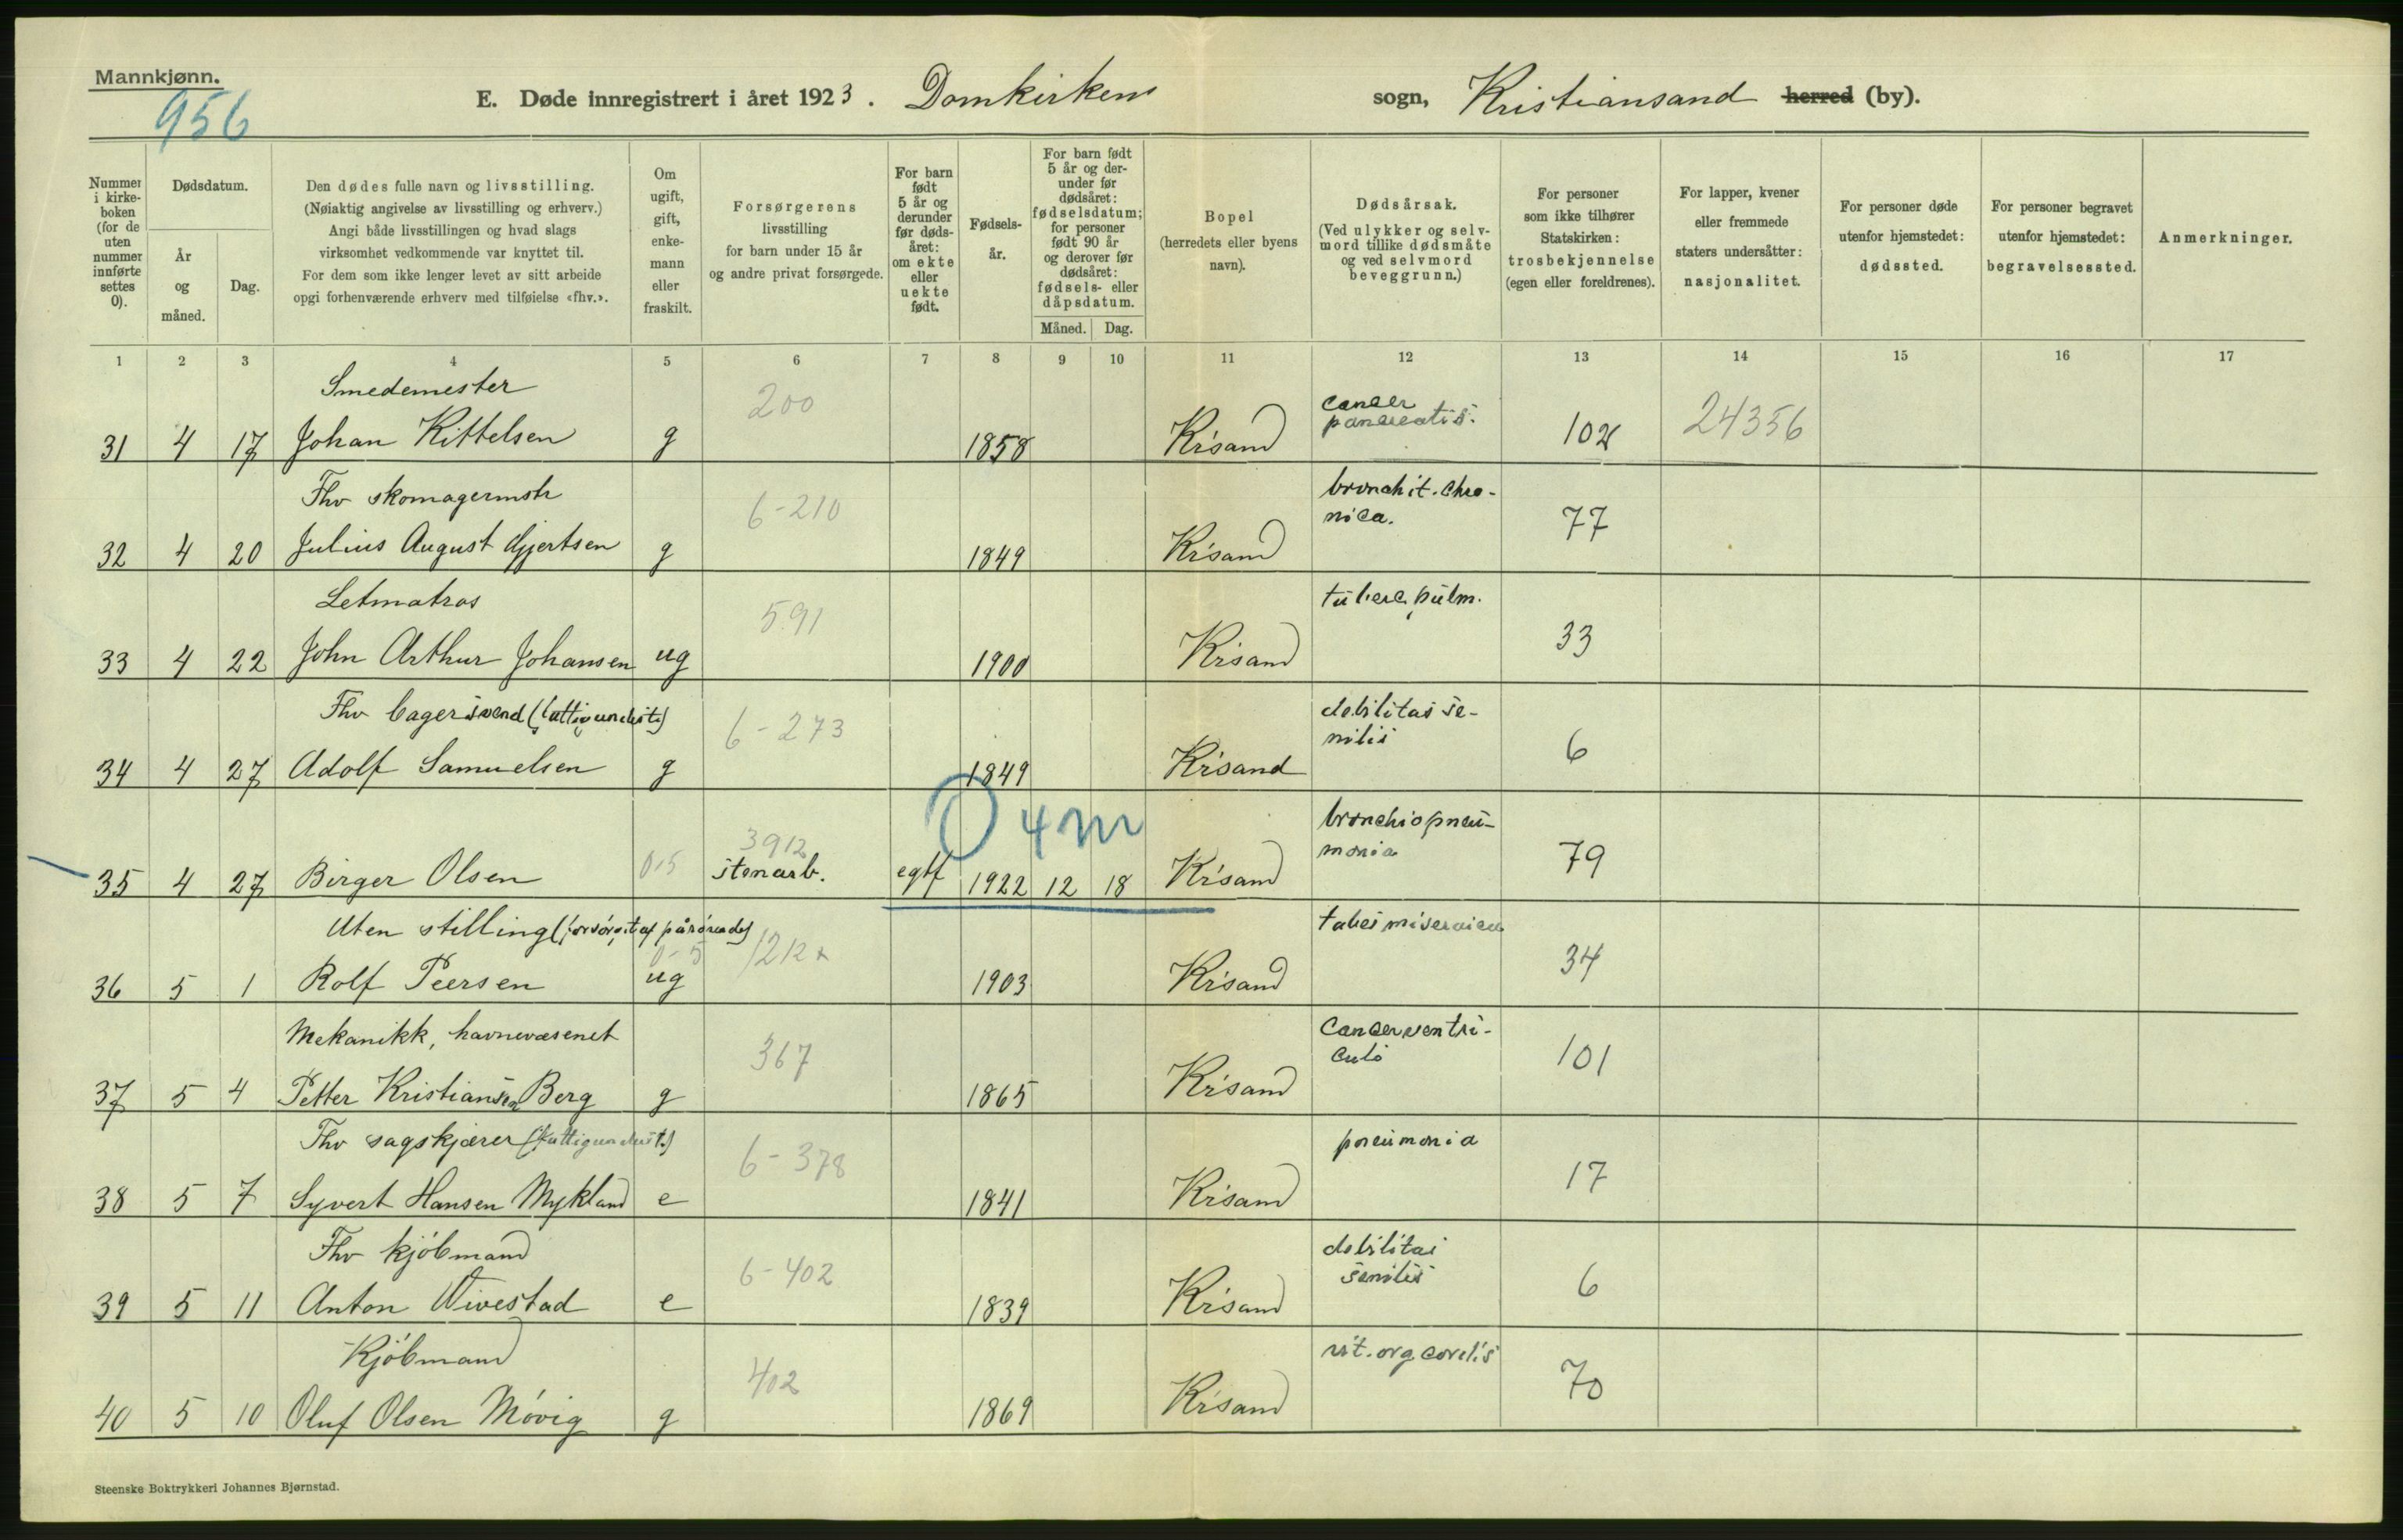 Mannkjønn.
956
E. Døde innregistrert i året 1923. Domkirkens sogn, Kristiansand herred (by).
Nummer i kirke-boken (for de uten nummer innførte settes 0).
Dødsdatum.
År og måned.
Dag.
Den dødes fulle navn og livsstilling.
(Nøiaktig angivelse av livsstilling og erhverv.)
Angi både livsstillingen og hvad slags
virksomhet vedkommende var knyttet til.
For dem som ikke lenger levet av sitt arbeide
opgi forhenværende erhverv med tilføielse «fhv.».
Om ugift, gift, enke-mann eller fraskilt.
Forsørgerens
livsstilling
for barn under 15 år
og andre privat forsørgede.
For barn født 5 år og derunder før døds-året: om ekte eller uekte født.
Fødsels-år.
For barn født 5 år og der-under før dødsåret: fødselsdatum; for personer født 90 år og derover før dødsåret: fødsels- eller dåpsdatum.
Måned. Dag.
Bopel
(herredets eller byens
navn).
Dødsårsak.
(Ved ulykker og selv-
mord tillike dødsmåte
og ved selvmord
beveggrunn.)
For personer
som ikke tilhører
Statskirken:
trosbekjennelse
(egen eller foreldrenes).
For lapper, kvener
eller fremmede
staters undersåtter:
nasjonalitet.
For personer døde
utenfor hjemstedet:
dødssted.
For personer begravet
utenfor hjemstedet:
begravelsessted.
Anmerkninger.
1 2 3 4 5 6 7 8 9 10 11 12 13 14 15 16 17
Smedemester 200 cancer
31 4 17 Johan Kittelsen g 1858 Kr'sand pancreatis. 102 24356
Fhv skomagermstr 6-210 bronchit. chro-
nica. 77
32 4 20 Julius August Gjertsen g 1849 Kr'sand
Letmatros 591 tuberc. pulm.
33 4 22 John Arthur Johansen ug 1900 Kr'sand 33
Fhv bagersvend (fattigunderst) 6-273 debilitas se-
nilis 6
34 4 27 Adolf Samuelsen g 1849 Kr'sand
0 4 m bronchiopneu-
3912 monia 79
35 4 27 Birger Olsen 0-5 stenarb. egtf 1922 12 18 Kr'sand
Uten stilling (forsørget af pårørende) tabes
0-5 1212
36 5 1 Rolf Peersen ug 1903 Kr'sand 34
Mekanikk, havnevæsenet 367 Cancer ventri-
culi 101
37 5 4 Petter Kristiansen Berg g 1865 Kr'sand
Fhv sagskjærer (fattigunderst.) 6-378 pneumonia
38 5 7 Syvert Hansen Mykland e 1841 Kr'sand 17
Fhv kjöbmand 6-402 debilitas
senilis 6
39 5 11 Anton Wivestad e 1839 Kr'sand
Kjöbmand 402 vit. org. cordis
40 5 10 Oluf Olsen Mövig g 1869 Kr'sand 70
Steenske Boktrykkeri Johannes Bjørnstad.